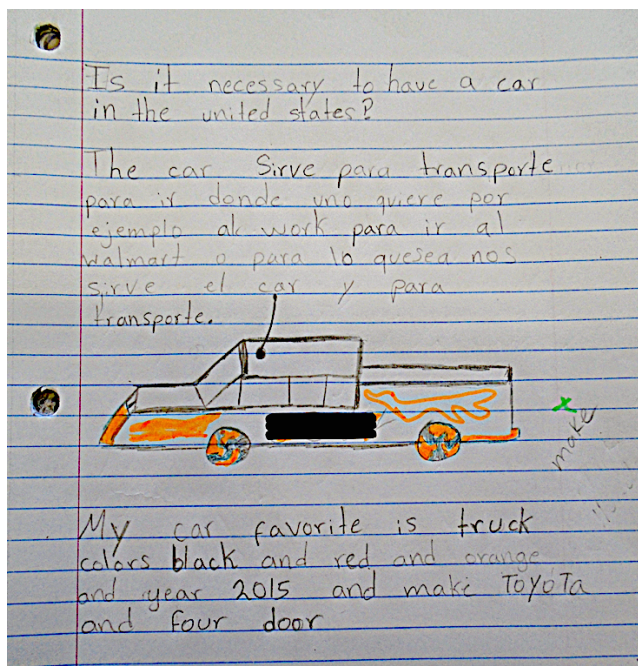 Is it necessary to have a car
in the united states?
The car Sirve para transporte
para ir donde uno quiere por
ejemplo al work para ir al
walmart o para lo quesea nos
sirve el car y para
transporte.
x
make
My car favorite is truck
colors black and red and orange
and year 2015 and make TOYOTa
and four door